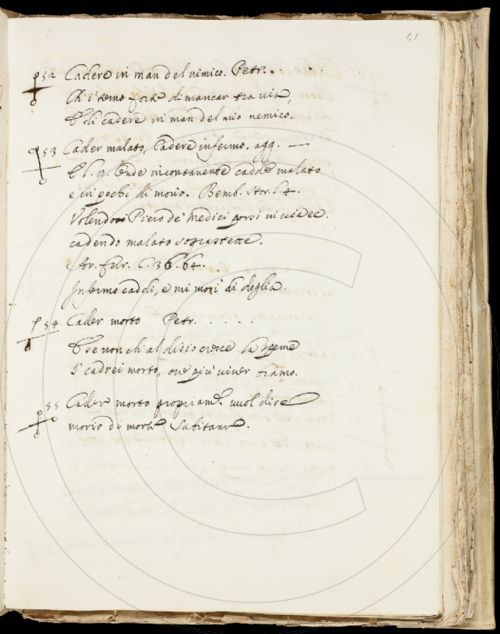 51
52 Cadere in man del nimico. Petr.
Ch'i temo forte di mancar tra via,
E di cadere in man del mio nemico.
53 Cader malato, Cadere infermo. agg. —
E l. 9. onde incontanente cadde malato
e in pochi dì morio. Bemb. Stor. l. 4.
Volendo Piero de' Medici porsi in via e
cadendo malato soprastette.
Ar. fur. C. 36. 64.
Infermo caddi, e mi morì di doglia.
54 Cader morto Petr. . . . .
E se non ch'al disio cresce la speme
I' cadrei morto, ove più viver bramo.
55 Cader morto propriam. vuol dire
morir di morte subitane.